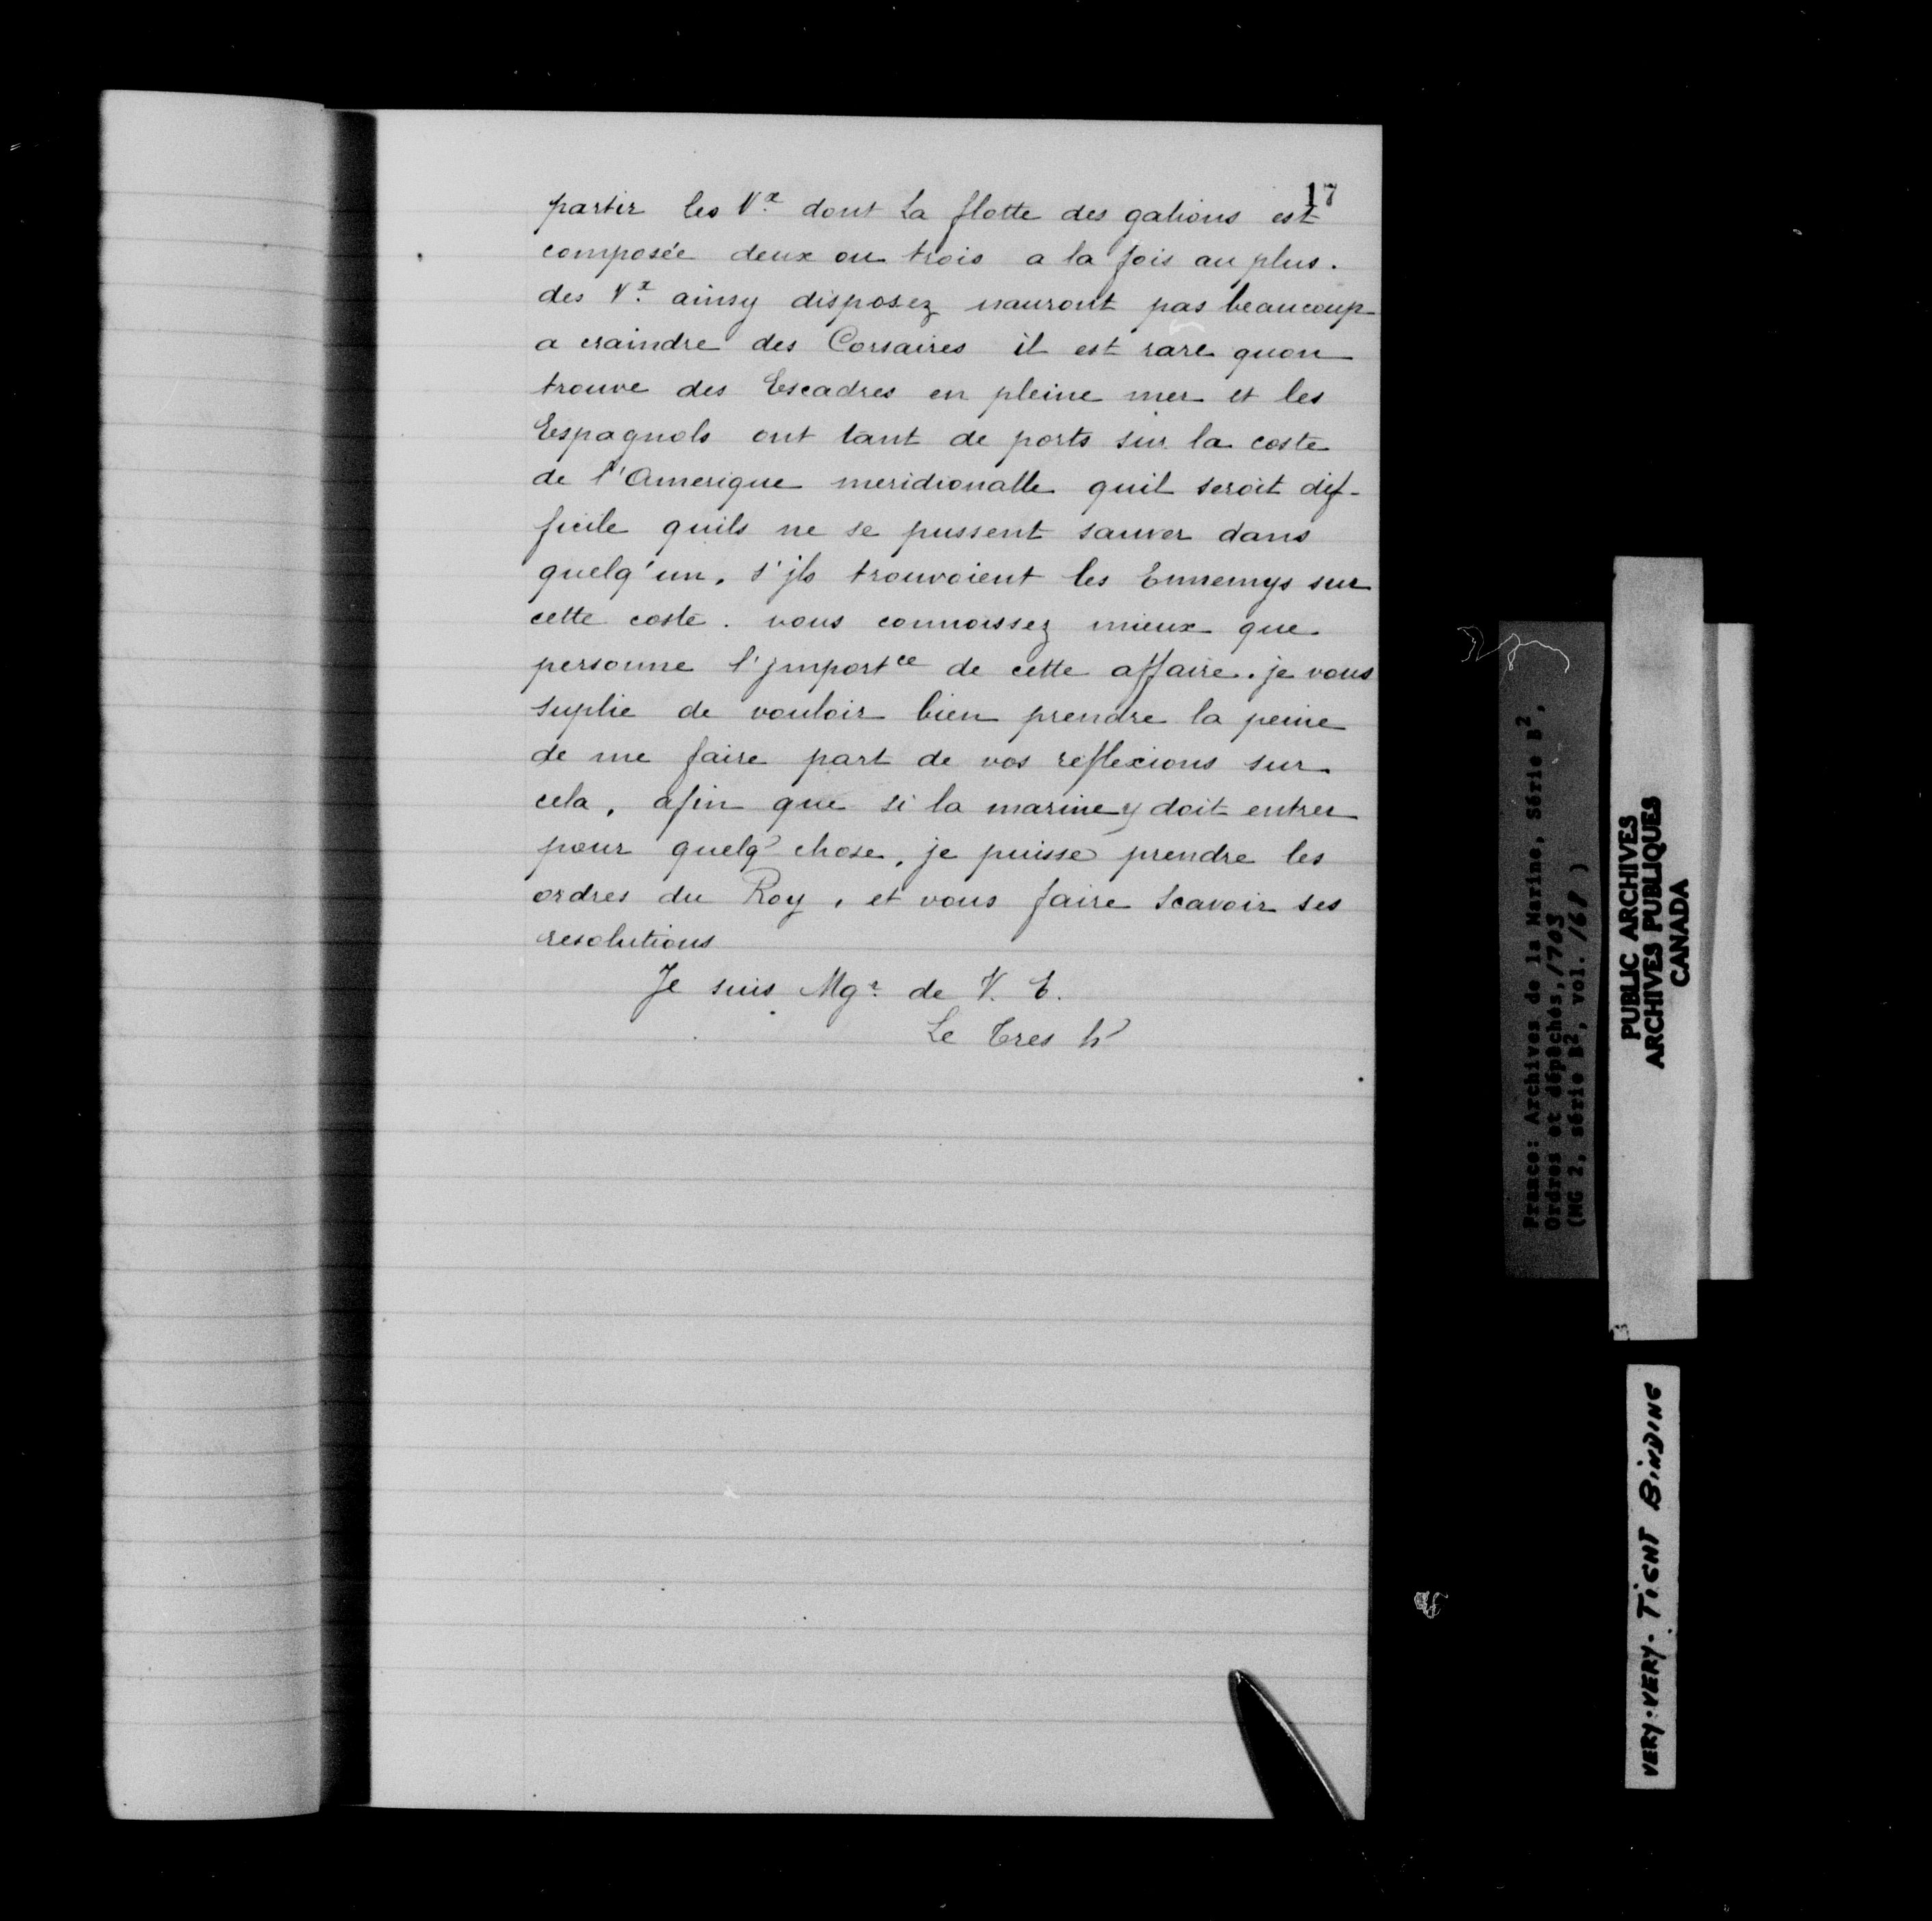 17
partir les Vx dont la flotte des galions est
composée deux ou trois a la fois au plus.
des Vx ainsy disposez nauront pas beaucoup
a craindre des Corsaires il est rare quon
trouve des Escadres en pleine mer et les
Espagnols ont tant de ports sur la coste
de l'Amerique meridionalle quil seroit dif-
ficile quils ne se pussent sauver dans
quelq'un, s'jls trouvoient les Ennemys sur
cette coste. vous connoissez mieux que
personne l'jmportce de cette affaire. je vous
suplie de vouloir bien prendre la peine
de me faire part de vos reflexions sur
cela, afin que si la marine y doit entrer
pour quelq' chose, je puisse prendre les
ordres du Roy, et vous faire scavoir ses
resolutions
Je suis Mgr de V. E.
Le Tres h'
France: Archives de la Marine, Série B2,
Ordres et dépêches, 1703
(MG 2, série B2, vol. 168)
PUBLIC ARCHIVES
ARCHIVES PUBLIQUES
CANADA
VERY-VERY-TIGHT BINDING